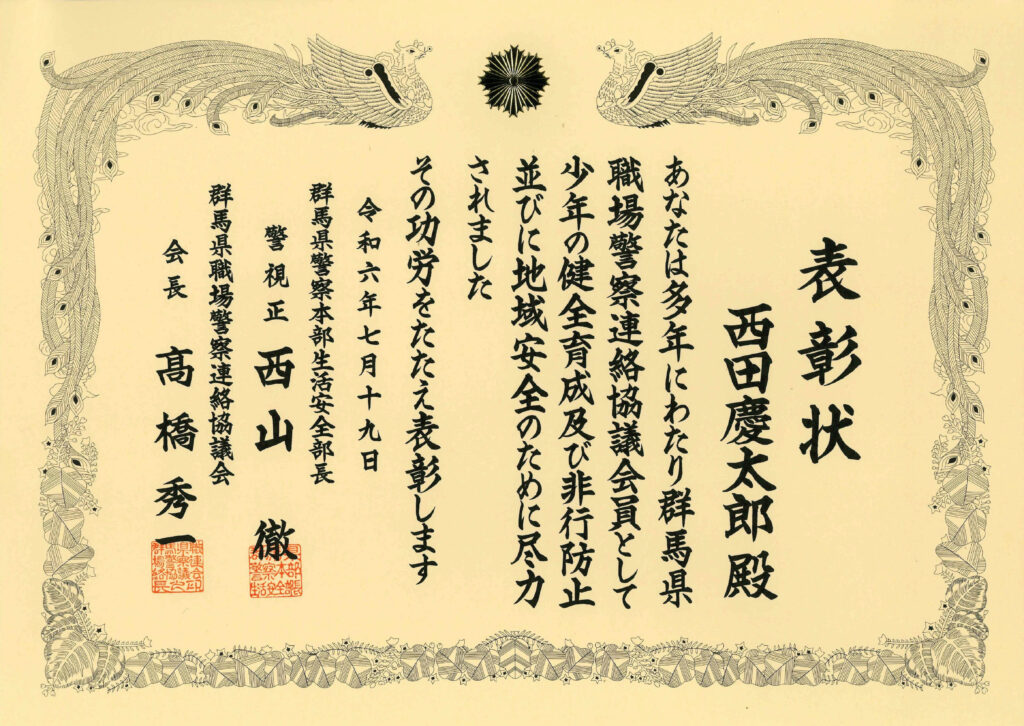 表彰状
西田慶太郎殿
あなたは多年にわたり群馬県
職場警察連絡協議会員として
少年の健全育成及び非行防止
並びに地域安全のために尽力
されました
その功労をたたえ表彰します
令和六年七月十九日
群馬県警察本部生活安全部長
警視正 西山 徹
群馬県職場警察連絡協議会
会長 髙橋秀一